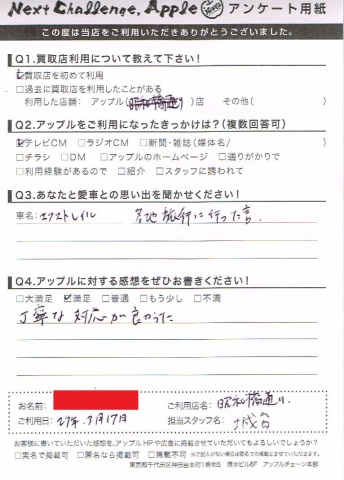 Next Challenge, Apple アンケート用紙
この度は当店をご利用いただきありがとうございました。
Q1.買取店利用について教えて下さい!
☑買取店を初めて利用
□過去に買取店を利用したことがある
利用した店舗: アップル(昭和橋通り)店 その他( )
Q2.アップルをご利用になったきっかけは?(複数回答可)
☑テレビCM □ラジオCM □新聞・雑誌(媒体名/ )
□チラシ □DM □アップルのホームページ □通りがかりで
□利用経験があるので □紹介 □スタッフに誘われて
Q3.あなたと愛車との思い出を聞かせください!
車名:エクストレイル 各地旅行に行った事.
Q4.アップルに対する感想をぜひお書きください!
□大満足 ☑満足 □普通 □もう少し □不満
丁寧な対応が良かった
お名前: ご利用店名:昭和橋通り.
ご利用日:27年.3月17日 担当スタッフ名:
お客様に書いていただいた感想を、アップルHPや広告に掲載させていただいてもよろしいでしょうか?
□実名で掲載可 □匿名なら掲載可 □掲載不可
アップルチェーン本部